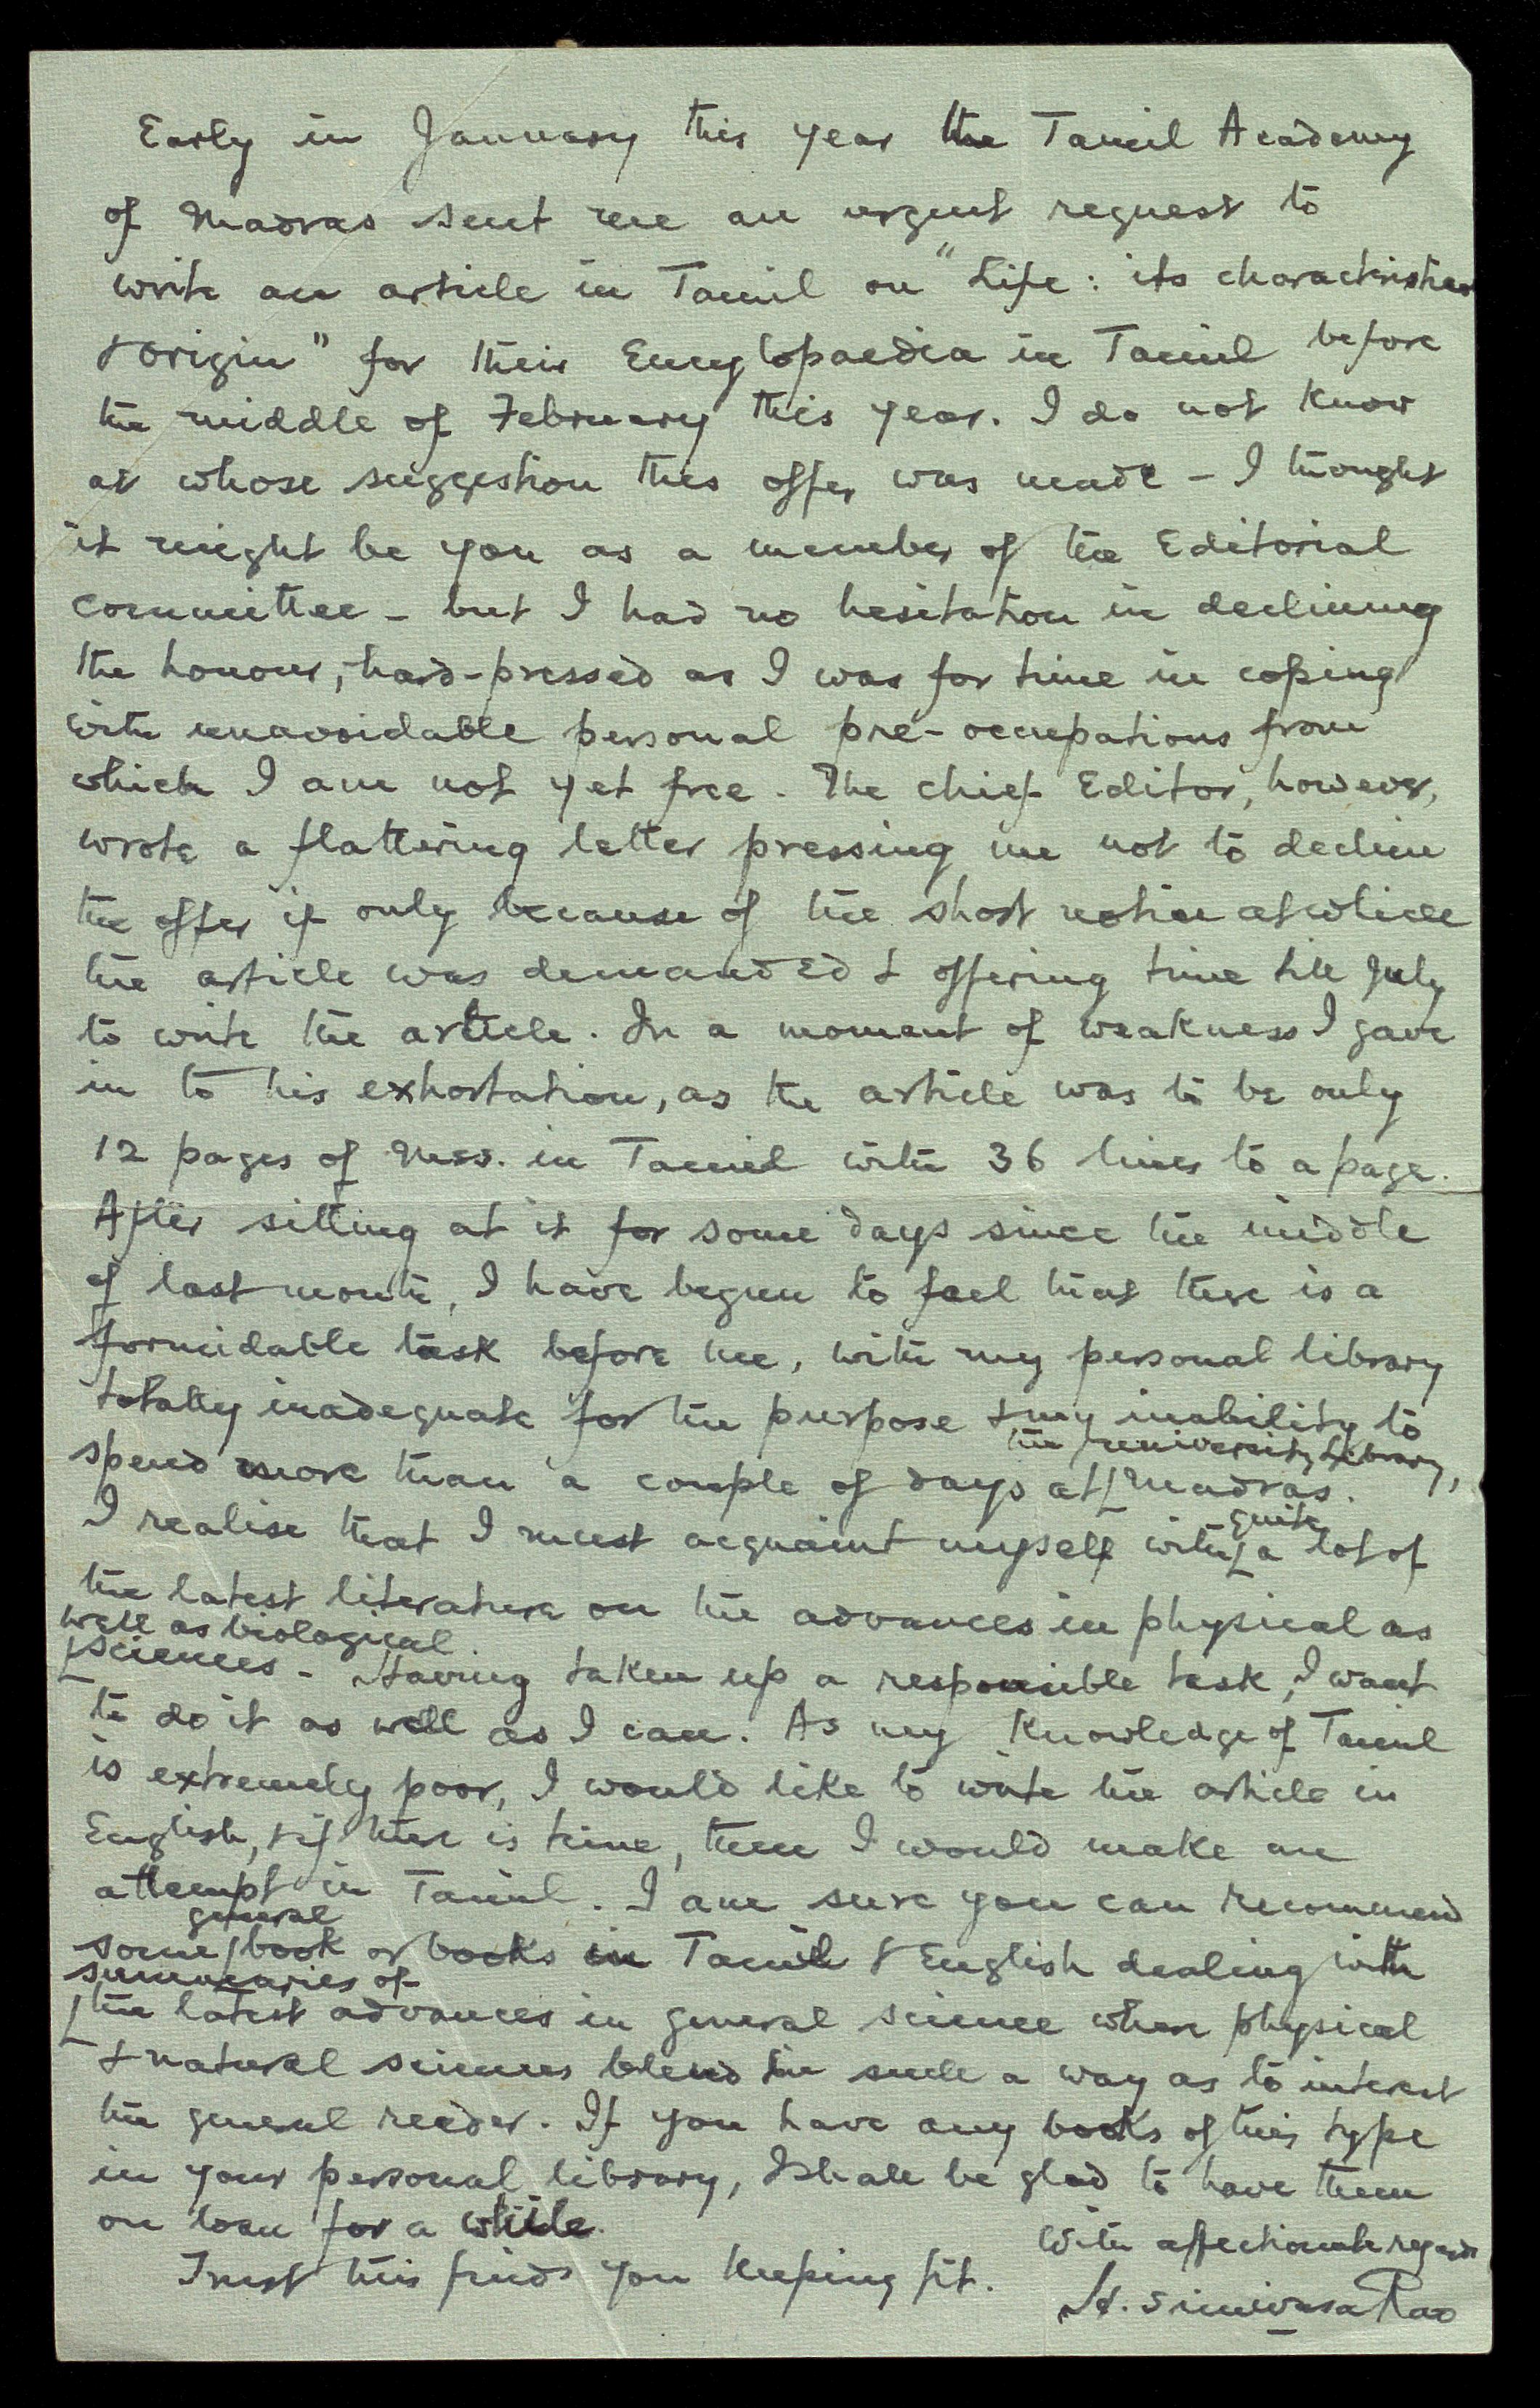 Early in January this year the Tamil Academy
of Madras sent me an urgent request to
write an article in Tamil on "Life: its charactristics
& origin" for their Encyclopaedia in Tamil before
the middle of February this year. I do not know
at whose suggestion this offer was made - I thought
it might be you as a member of the Editorial
committee - but I had no hesitation in declining
the honour, hard-pressed as I was for time in coping
with unavoidable personal pre-occupations from
which I am not yet free. The chief Editor, however,
wrote a flattering letter pressing me not to decline
the offer if only because of the short notice at which
the article was demanded & offering time till July
to write the article. In a moment of weakness I gave
in to his exhortation, as the article was to be only
12 pages of Mss. in Tamil with 36 lines to a page.
After sitting at it for some days since the middle
of last month, I have begun to feel that there is a
formidable task before me, with my personal library
totally inadequate for the purpose & my inability to
the University Library,
spend more than a couple of days at Madras.
quite
I realise that I must acquaint myself with a lot of
the latest literature on the advances in physical as
well as biological
sciences - Having taken up a responsible task, I want
to do it as well as I can. As my knowledge of Tamil
is extremely poor, I would like to write the article in
English, & if there is time, then I would make an
attempt in Tamil. I am sure you can recommend
general
some book or books in Tamil & English dealing with
summaries of
the latest advances in general science where physical
& natural sciences blend in such a way as to interest
the general reader. If you have any books of this type
in your personal library, I shall be glad to have them
on loan for a while.
With affectionate regards
Trust this finds you keeping fit.
H. Srinivasa Rao